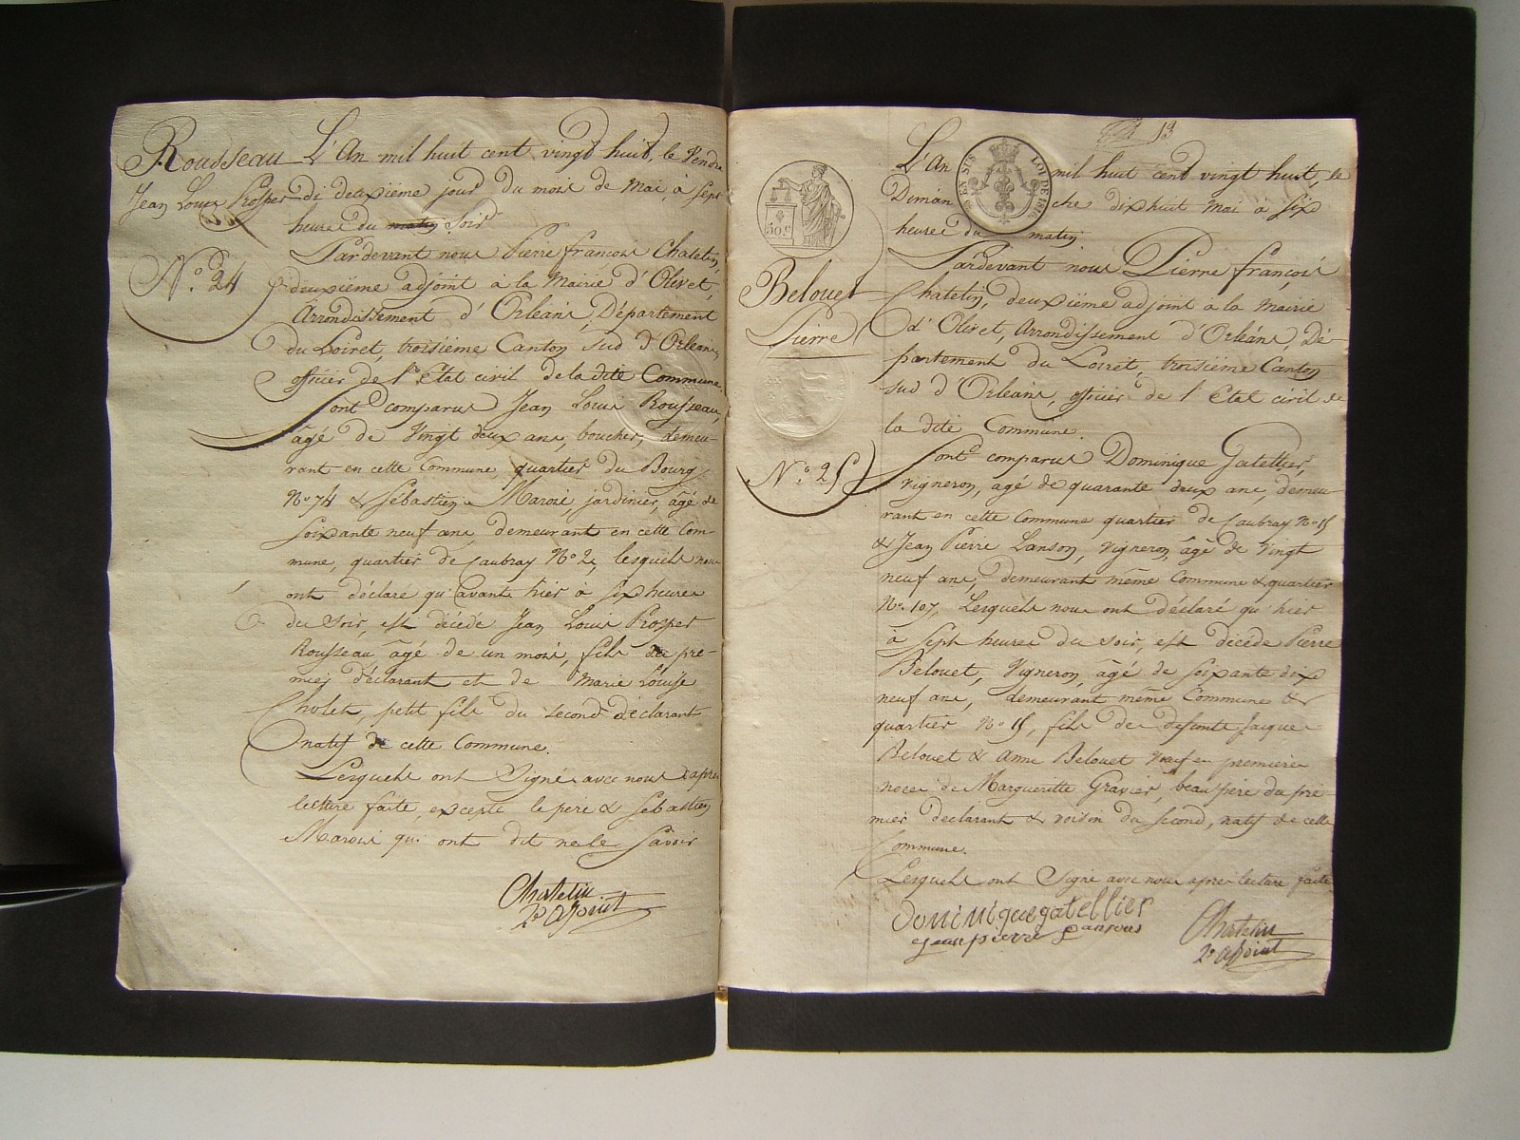 Rousseau
Jean Louis Prosper
N.° 24
L'An mil huit cent vingt huit, le Vendre
di deuxième jour du mois de Mai, à sept
heures du matin soir
Pardevant nous Pierre françois Chatelin,
deuxième adjoint à la Mairie d'Olivet,
Arrondissement d'Orléans, Département
du Loiret, troisième Canton sud d'Orléans,
officier de l'Etat civil de la dite Commune.
Sont comparus Jean Louis Rousseau,
âgé de Vingt deux ans, boucher, demeu-
rant en cette Commune, quartier du Bourg
N° 74 & Sébastien Marois, jardinier, âgé de
soixante neuf ans, demeurant en cette Com-
mune, quartier de Caubray N° 2, lesquels nous
ont déclaré qu'avant hier à six heures
du soir, est décédé Jean Louis Prosper
Rousseau âgé de un mois, fils du pre-
mier déclarant et de Marie Louise
Cholet, petit fils du second déclarant
natif de cette Commune.
Lesquels ont Signé avec nous après
lecture faite, excepté le père & Sébastien
Marois qui ont dit ne le Savoir
Chatelin
2e adjoint
13
50 c
EN SUS
LOI DE 1816
Belouet
Pierre
N.° 25
L'An mil huit cent vingt huit, le
Diman che dixhuit Mai à six
heures du matin
Pardevant nous Pierre françois
Chatelin, deuxième adjoint à la Mairie
d'Olivet, Arrondissement d'Orléans, Dé-
partement du Loiret, troisième Canton
sud d'Orléans, officier de l'Etat civil de
la dite Commune.
Sont comparus Dominique Gatellier,
vigneron, âgé de quarante deux ans, demeu-
rant en cette Commune quartier de Caubray N° 15
& Jean Pierre Lanson, vigneron, âgé de Vingt
neuf ans, demeurant même Commune & quartier
N° 107, Lesquels nous ont déclaré qu'hier
à sept heures du soir, est décédé Pierre
Belouet, Vigneron, âgé de soixante dix
neuf ans, demeurant même Commune &
quartier N° 15, fils de défunts Jacques
Belouet & Anne Belouet Veuf en premières
noces de Margueritte Gravier, beau père du pre-
mier déclarant & voisin du second, natif de cette
Commune.
Lesquels ont Signé avec nous après lecture faite
Dominique gatellier
jean pierre Lanson
Chatelin
2e adjoint